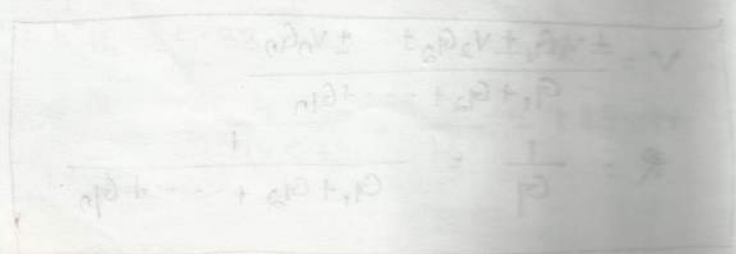 V = ± V₁G₁ ± V₂G₂ ± ± VnGn / G₁ + G₂ + --- + Gn
R = 1 / G = 1 / G₁ + G₂ + --- + Gn